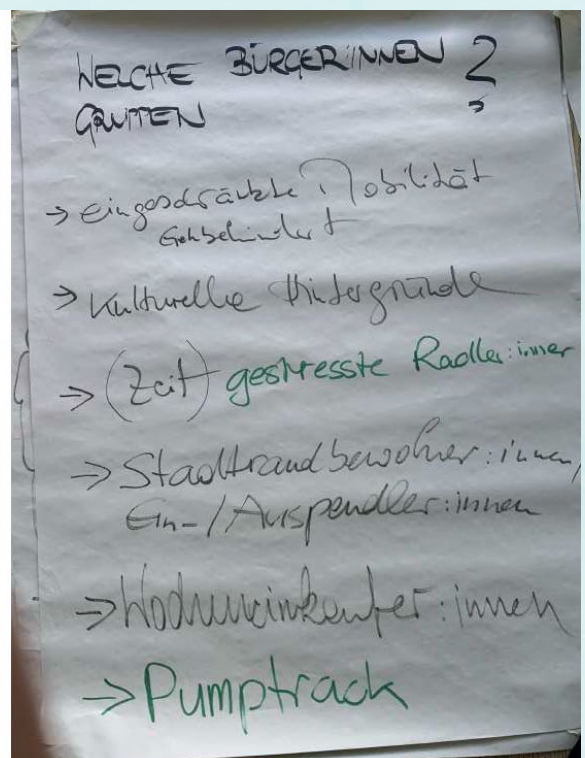 WELCHE BÜRGER:INNEN ?
GRUPPEN
→ Eingeschränkte Mobilität
Gehbehindert
→ Kulturelle Hintergründe
→ (Zeit) gestresste Radler:innen
→ Stadtrandbewohner:innen/
Ein-/Auspendler:innen
→ Wocheneinkäufer:innen
→ Pumptrack